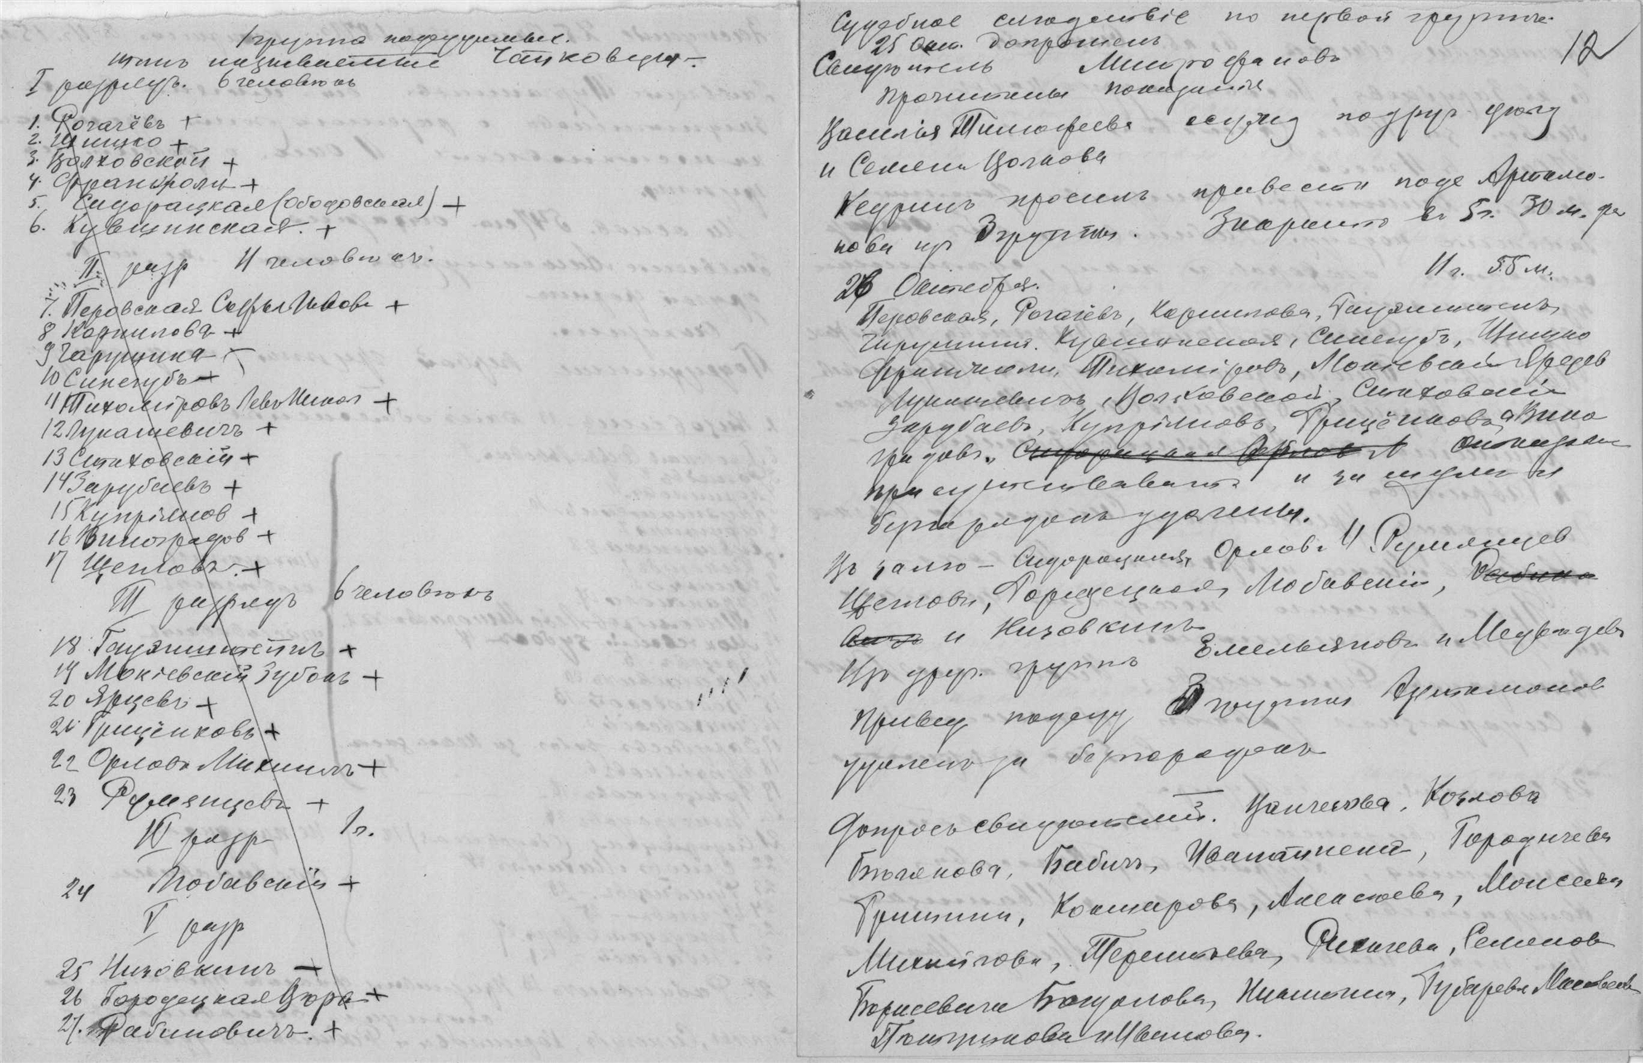 1 группа подсудимых.
такъ называемые Чайковцы.
I разрядъ. 6 человѣкъ
1. Рогачёвъ +
2. Шишко +
3. Волховской +
4. Франжоли +
5. Сидорацкая (Ободовская) +
6. Кувшинская. +
II. разр 11 человѣкъ.
7. Перовская Софья Львовн +
8 Корнилова +
9 Чарушинъ
10 Синегубъ +
11 Тихоміровъ Левъ Никол +
12 Лукашевичъ +
13 Стаховскій +
14 Зарубаевъ +
15 Купріянов +
16 Виноградов +
17 Щеглова. +
III разрядъ 6 человѣкъ
18 Гауэнштейнъ +
19 Мокіевскій Зубокъ +
20 Ярцевъ +
21 Грицёнковъ +
22 Орловъ Михаилъ +
23 Румянцевъ +
IV разр 1 ч.
24 Любавскій +
V разр
25 Низовкинъ +
26 Городецкая Вѣра +
27. Рабиновичъ. +
Судебное слѣдствіе по первой группѣ.
12
25 Окт. допрошенъ
Свидѣтель Митрофановъ
прочитаны показанія
Василія Тимофеева
и Семена Волкова
Кедринъ просилъ привести подс Артамо-
нова из 3 группы. Закрыто въ 5 ч. 30 м.
11 ч. 55 м.
26 Октября.
Перовская, Рогачёвъ, Корнилова, Гауэнштейнъ
Чарушинъ. Кувшинская, Синегубъ, Шишко
Франжоли, Тихоміровъ, Мокіевскій Ярцев
Лукашевичъ, Волховской, Стаховскій
Зарубаевъ, Купріяновъ, Грицёнковъ, Вино
градовъ. Сидорацкая Орлов отказал
присутствовать и за шумъ и
безпорядокъ удалены.
Въ залѣ – Сидорацкая, Орлов. М. Румянцев
Щеглова, Городецкая, Любавскій,
и Низовкинъ
Изъ друг. группъ Емельяновъ и Медвѣдевъ
Привед подсуд 3 группы Артамонов
удаленъ за безпорядокъ
Допросъ свидѣтелей. Козлова
Бѣлякова, Бабичъ, Городничева
Гришина, Комарова, Алексѣева, Моисеева
Михайлова, Терентьева, Семенов
Борисевича Богданова, Никитина, Губарева
и Иванова.